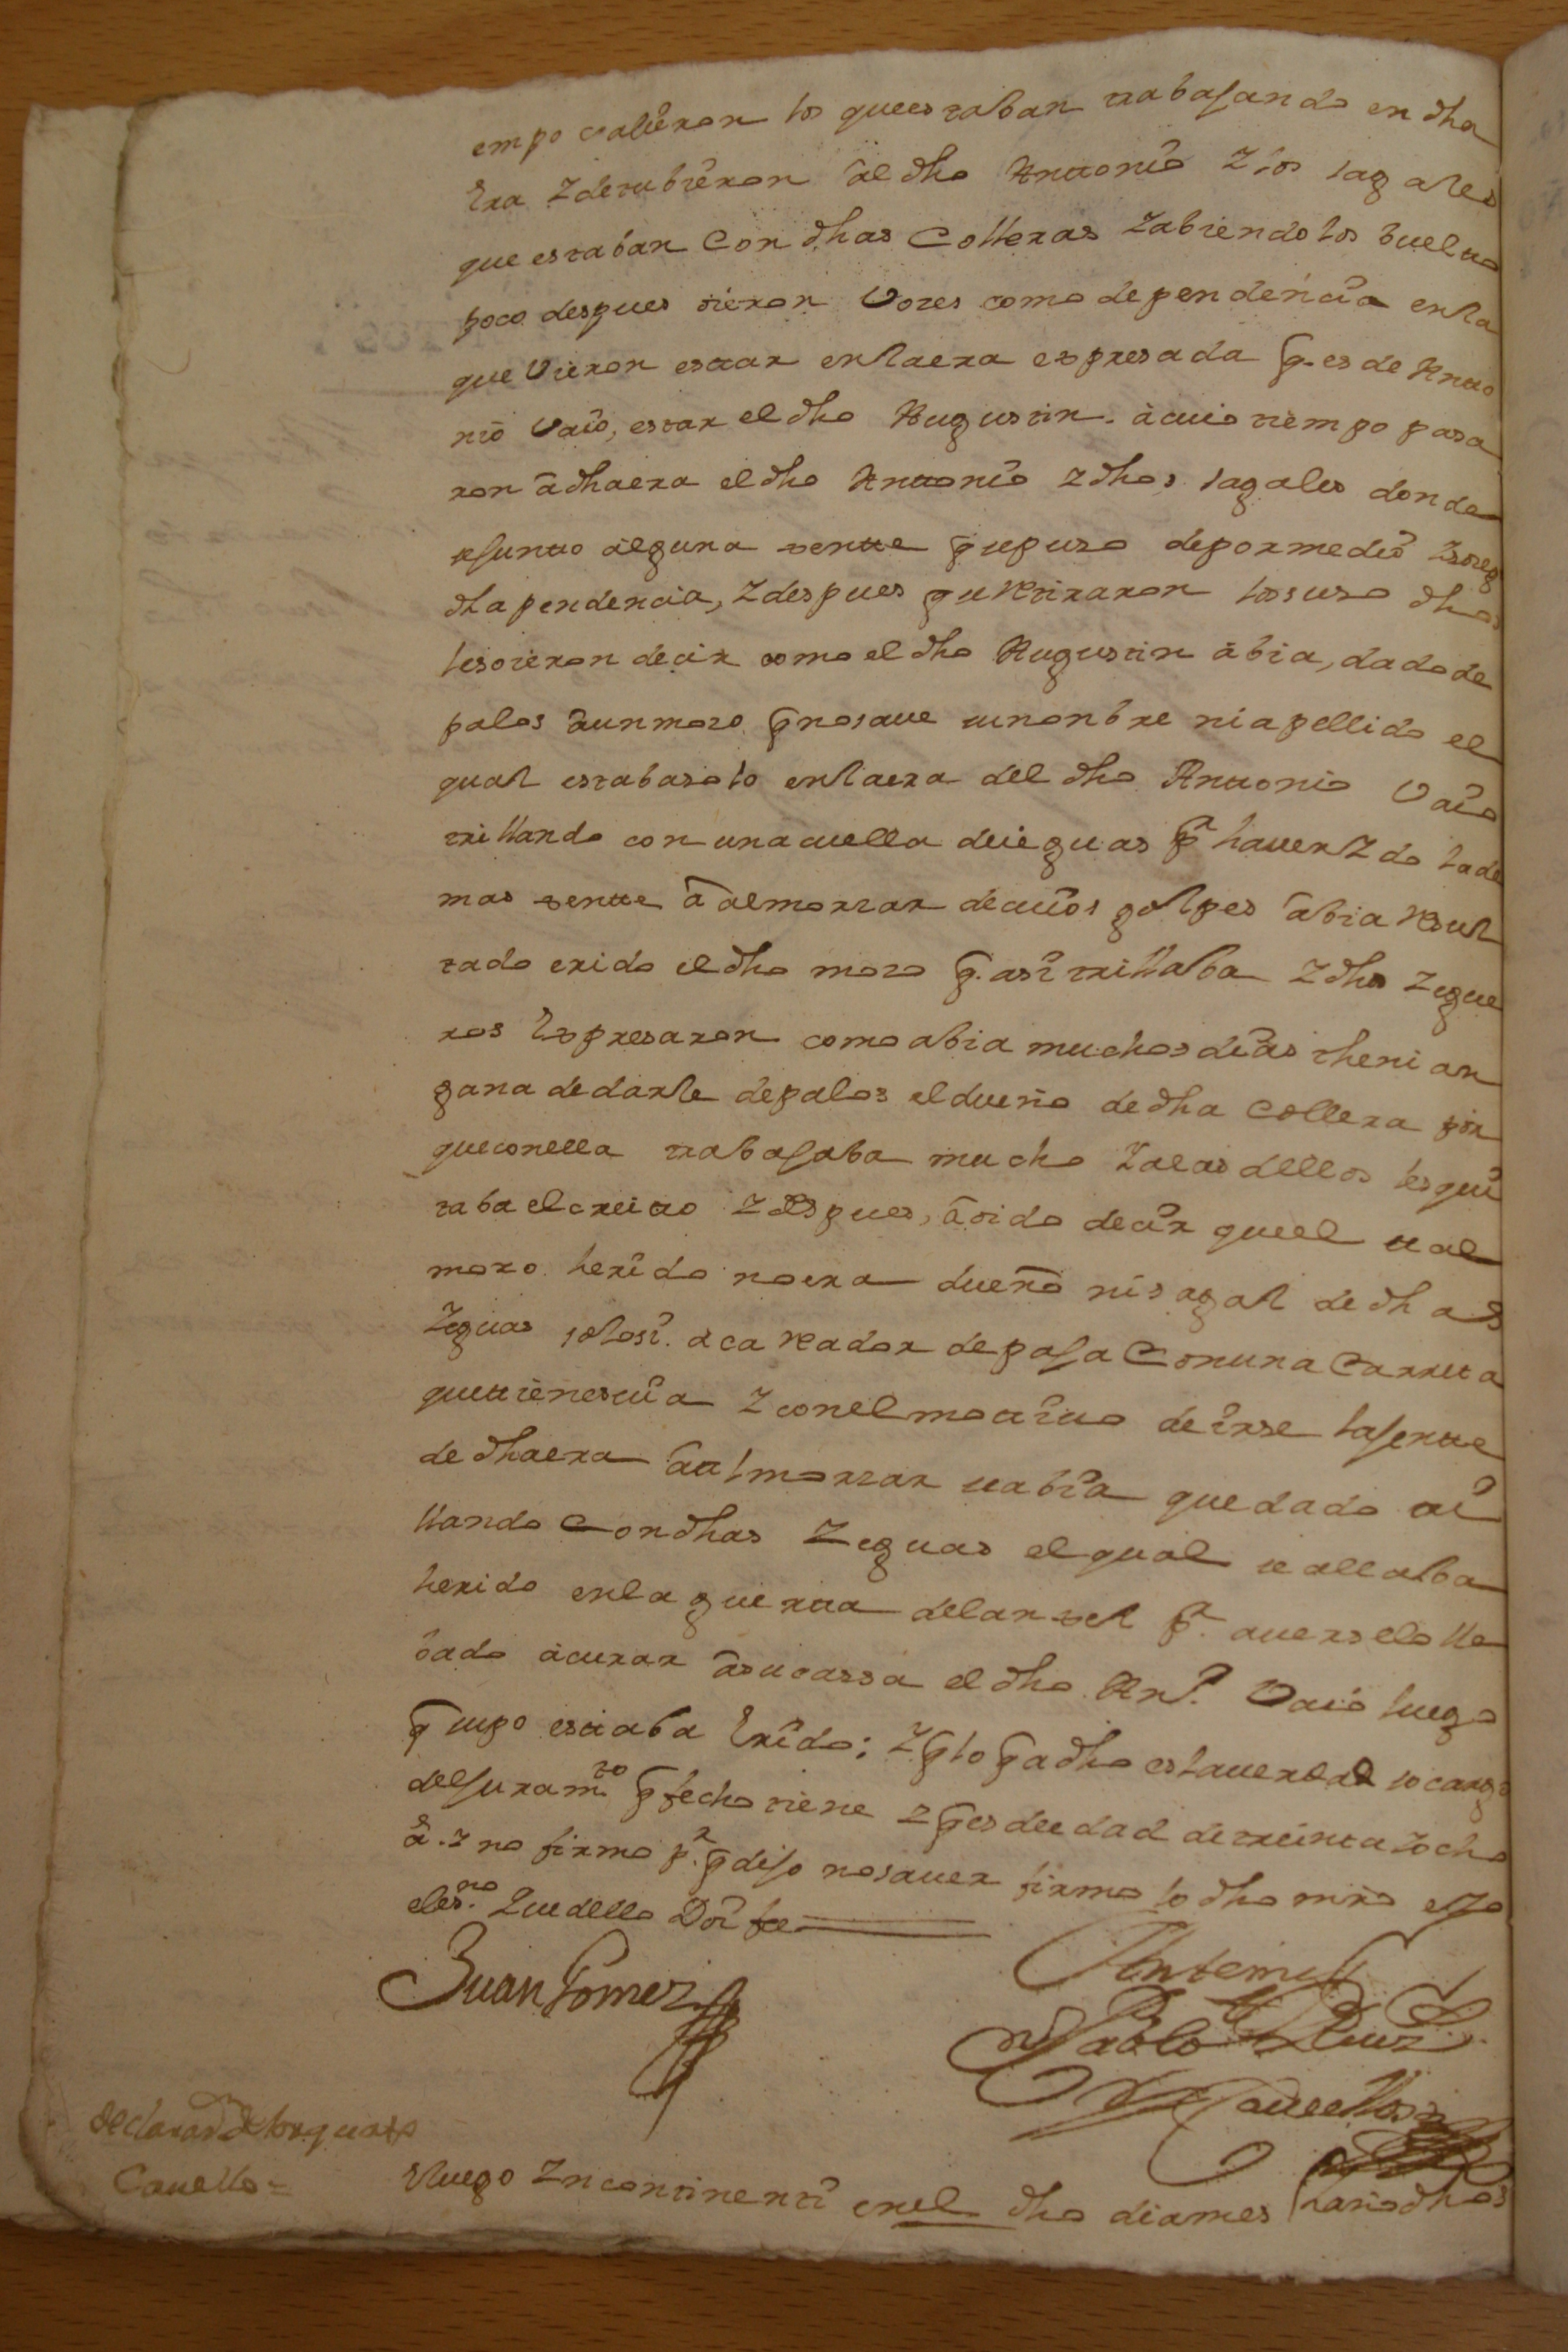 empo salieron los queestaban trabajando en dha
Era Y detubieron al dho Anttonio Y los sagales
que estaban Con dhas Colleras Yabiendolos buelto
poco despues oieron Vozes como dependencia enla
que Vieron esttar enlaera expresada q. es de Antto
nio Vaio, estar el dho Augustin. à cuio tiempo pasa
ron à dhaera el dho Anttonio Y dhos sagales donde
se juntto alguna xentte q puso depormedio
dha pendencia, Y despues q retiraron los suso dhos
lesoieron decir como el dho Augustin abia, dado de
palos àun mozo q nosave su nonbre niapellido el
qual estabasolo enlaera del dho Anttonio Vaio
trillando con una cuella deieguas pr haverYdo lade
mas xentte à almorzar decuios golpes abia Resul
tado erido el dho mozo q. asi trillaba Y dhos Yegue
ros Expresaron como abia muchos dias thenian
gana dedarle depalos eldueño de dha Collera por
queconella trabajaba mucho Yalas dellos les qui
taba elcreitto Y despues, à oido decir queel tal
mozo herido noera dueño nisagal de dhas
Yeguas solosi. acarreador depaja Conuna Carreta
quettienesuia Y conelmotiuo deirse lajentte
de dhaera à almorzar sabia quedado tri
llando Con dhas Yeguas elqual se allaba
herido enla guertta delanxel pr. averselo lle
bado acurar asucassa el dho Antt.o Vaio luego
q supo esttaba Erido; Y q lo q a dho eslaverdad socargo
desjuramto q fecho tiene Y q es deedad detreinta Yocho
a.s Y no firmo pr. q dijo nosaver firmo lo dho mrd eyo
eles.no Que dello Doi fee
Juan Gomez
Antemi
Pablo Ruiz
Cavellos
declaraon de torquato
Cavello =
Eluego Yncontinentti enel dho diames Yaño dhos